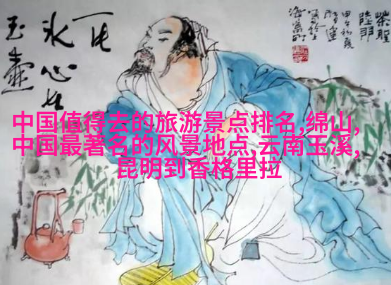 一片
冰心在
玉壺
中国值得去的旅游景点排名,绵山,
中国最著名的风景地点,云南玉溪,
昆明到香格里拉